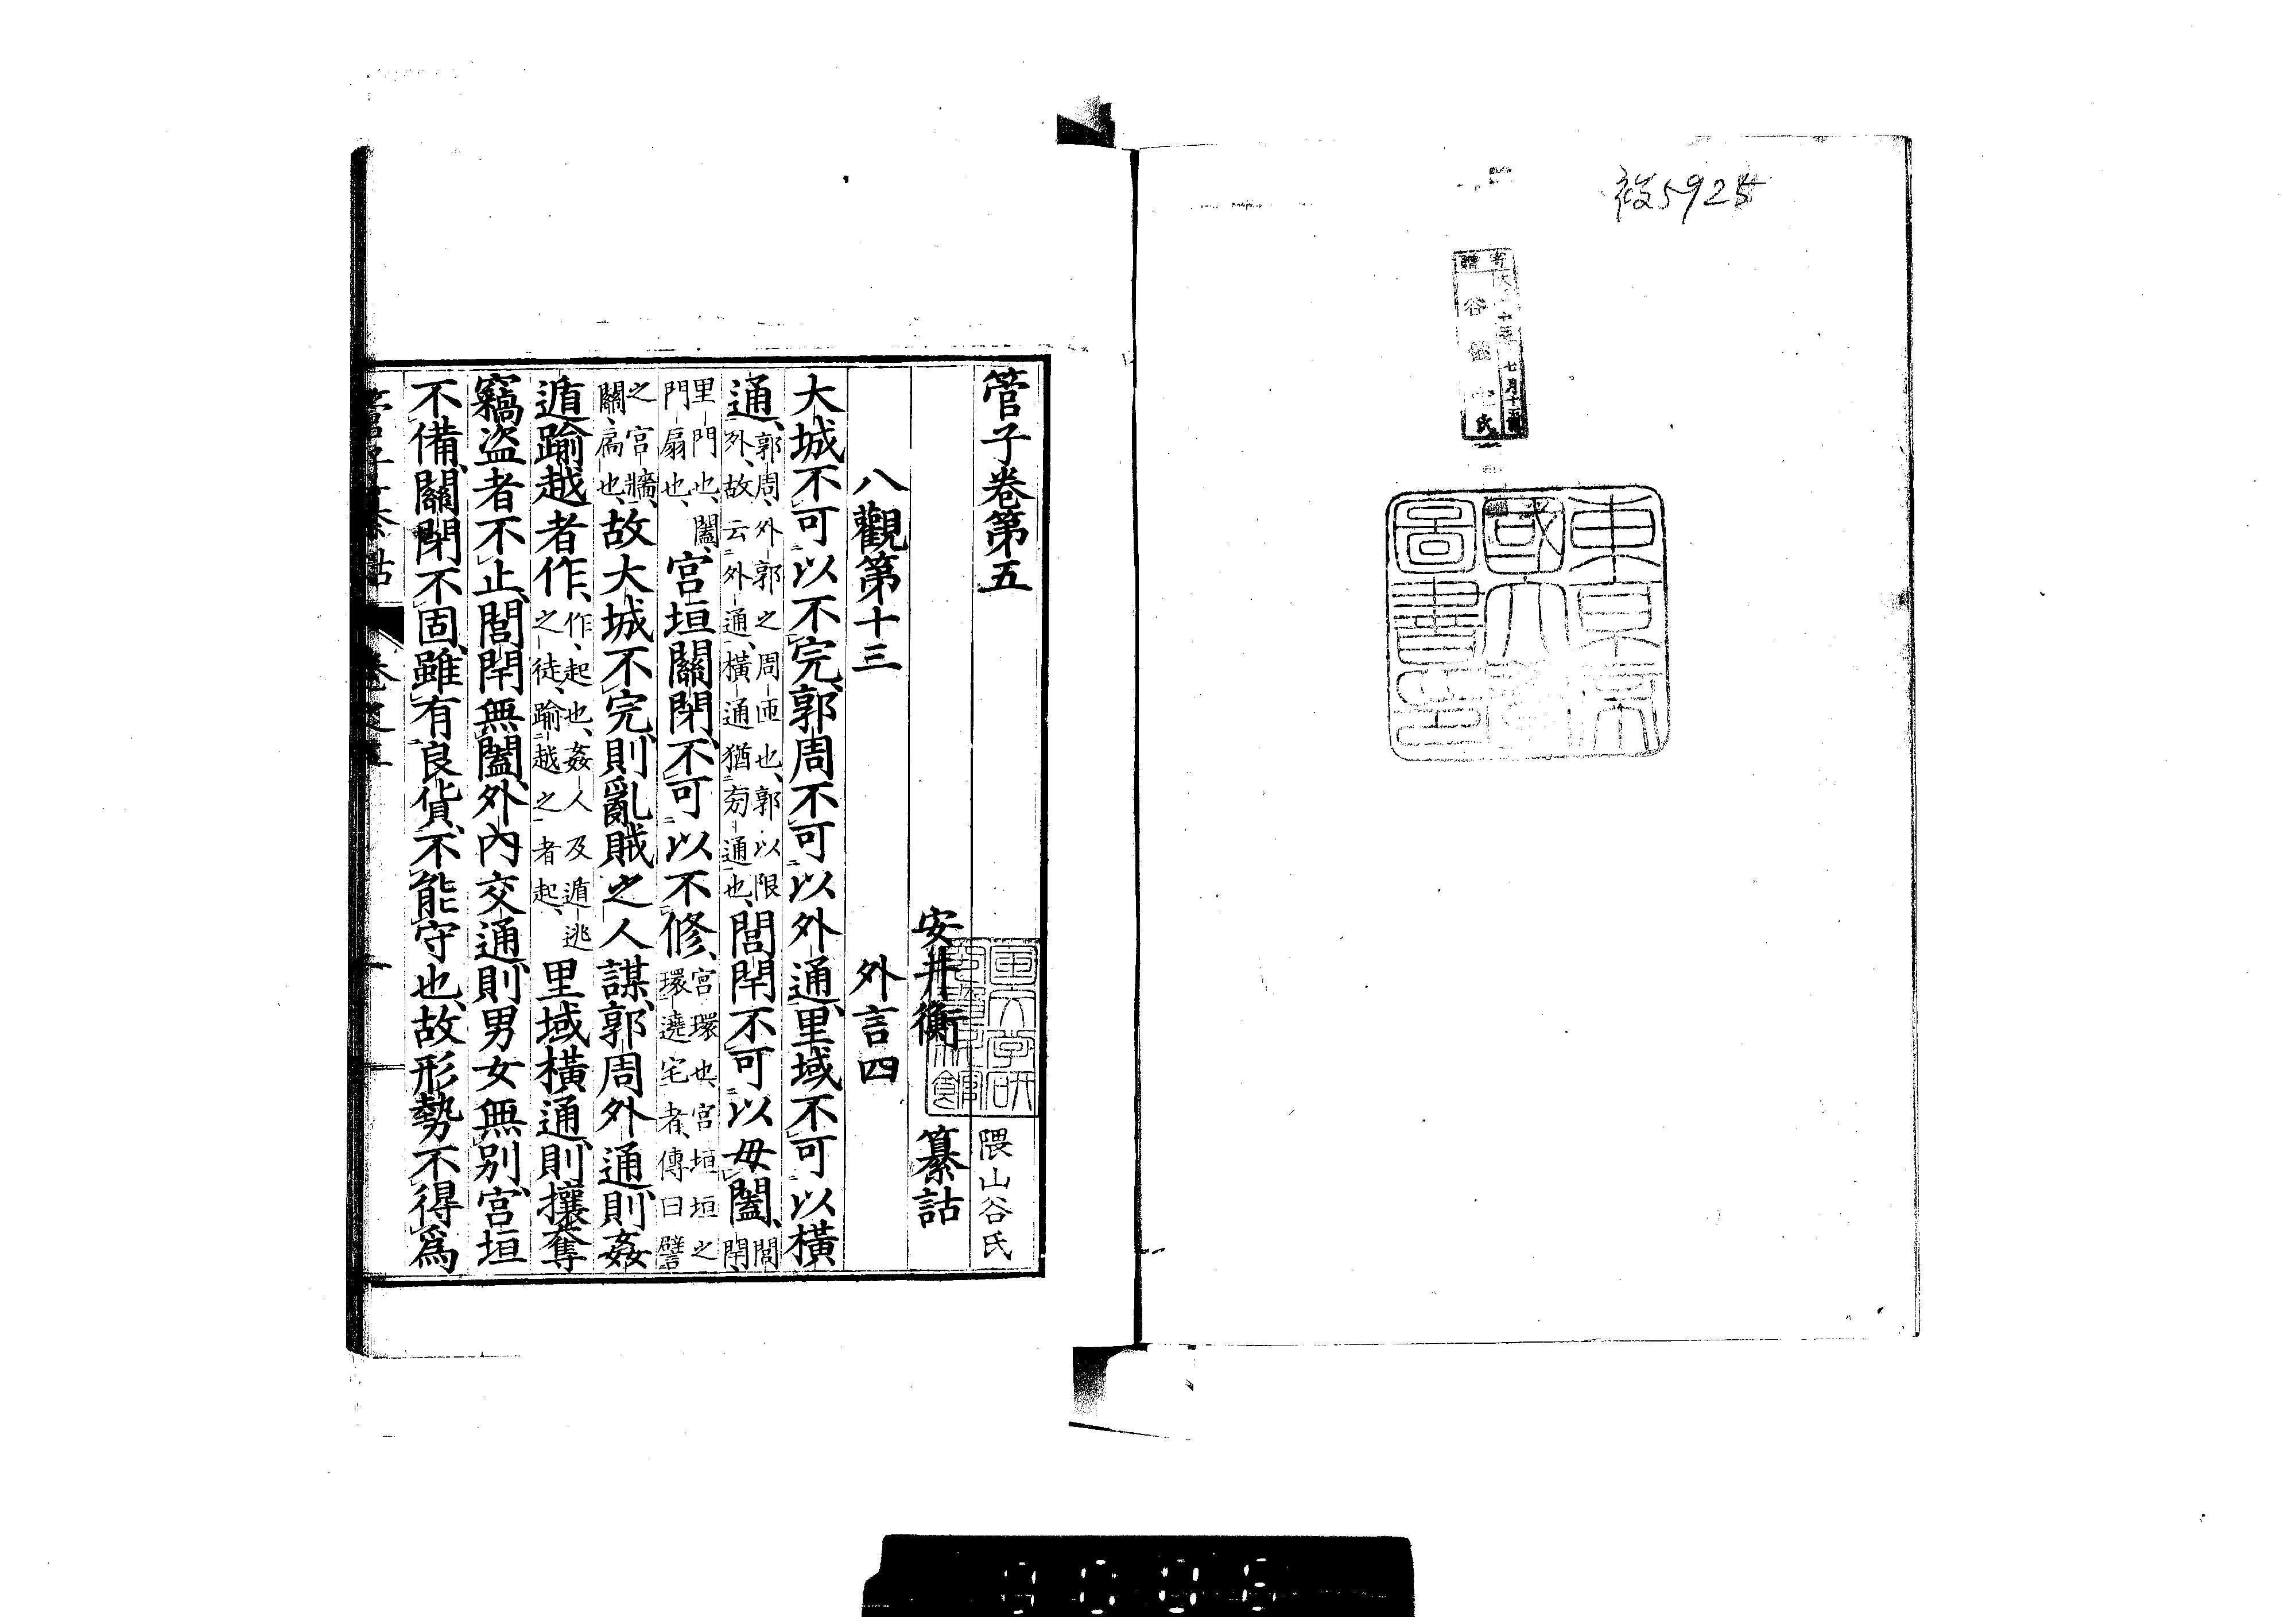 複5925
寄贈
谷
氏
七月十
東京帝
國大學
圖書印
管子卷第五
隈山谷氏
安井衡 纂詁
八觀第十三 外言四
大城不可以不完、郭周不可以外通、里域不可以橫
通、郭周、外郭之周匝也、郭以限外、故云外通、橫通猶旁通也、閭閈不可以毋闔、閭閈、
里門也、闔、門扇也、宮垣關閉、不可以不修、宮環也、宮垣垣之環遶宅者、傳曰、譬
之宮牆、關、扃也、故大城不完、則亂賊之人謀、郭周外通、則姦
遁踰越者作、作、起也、姦人及遁逃之徒、踰越之者起、里域橫通、則攘奪
竊盜者不止、閭閈無闔、外內交通、則男女無別、宮垣
不備、關閉不固、雖有良貨、不能守也、故形勢不得爲
管子纂詁 卷之五 一